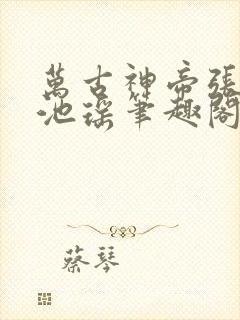 萬古神帝張
池瑤筆趣閣
蔡琴